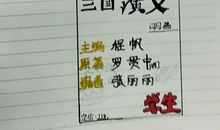 三国演义
主编 程帆
原著 罗贯中(明)
编者 张丽丽
学生